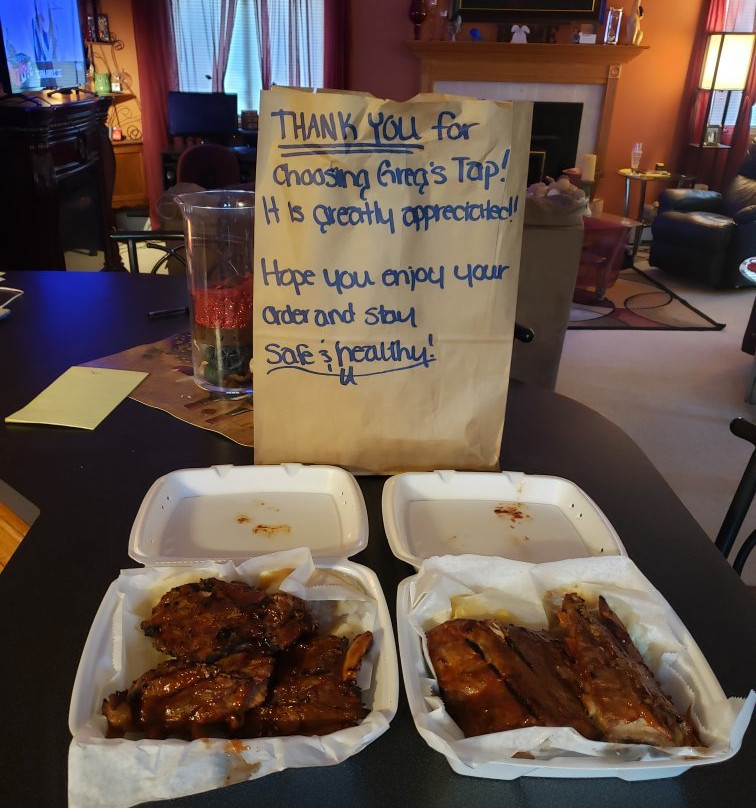 THANK YOU for
choosing Greg's Tap!
It is greatly appreciated!!
Hope you enjoy your
order and stay
safe & healthy!